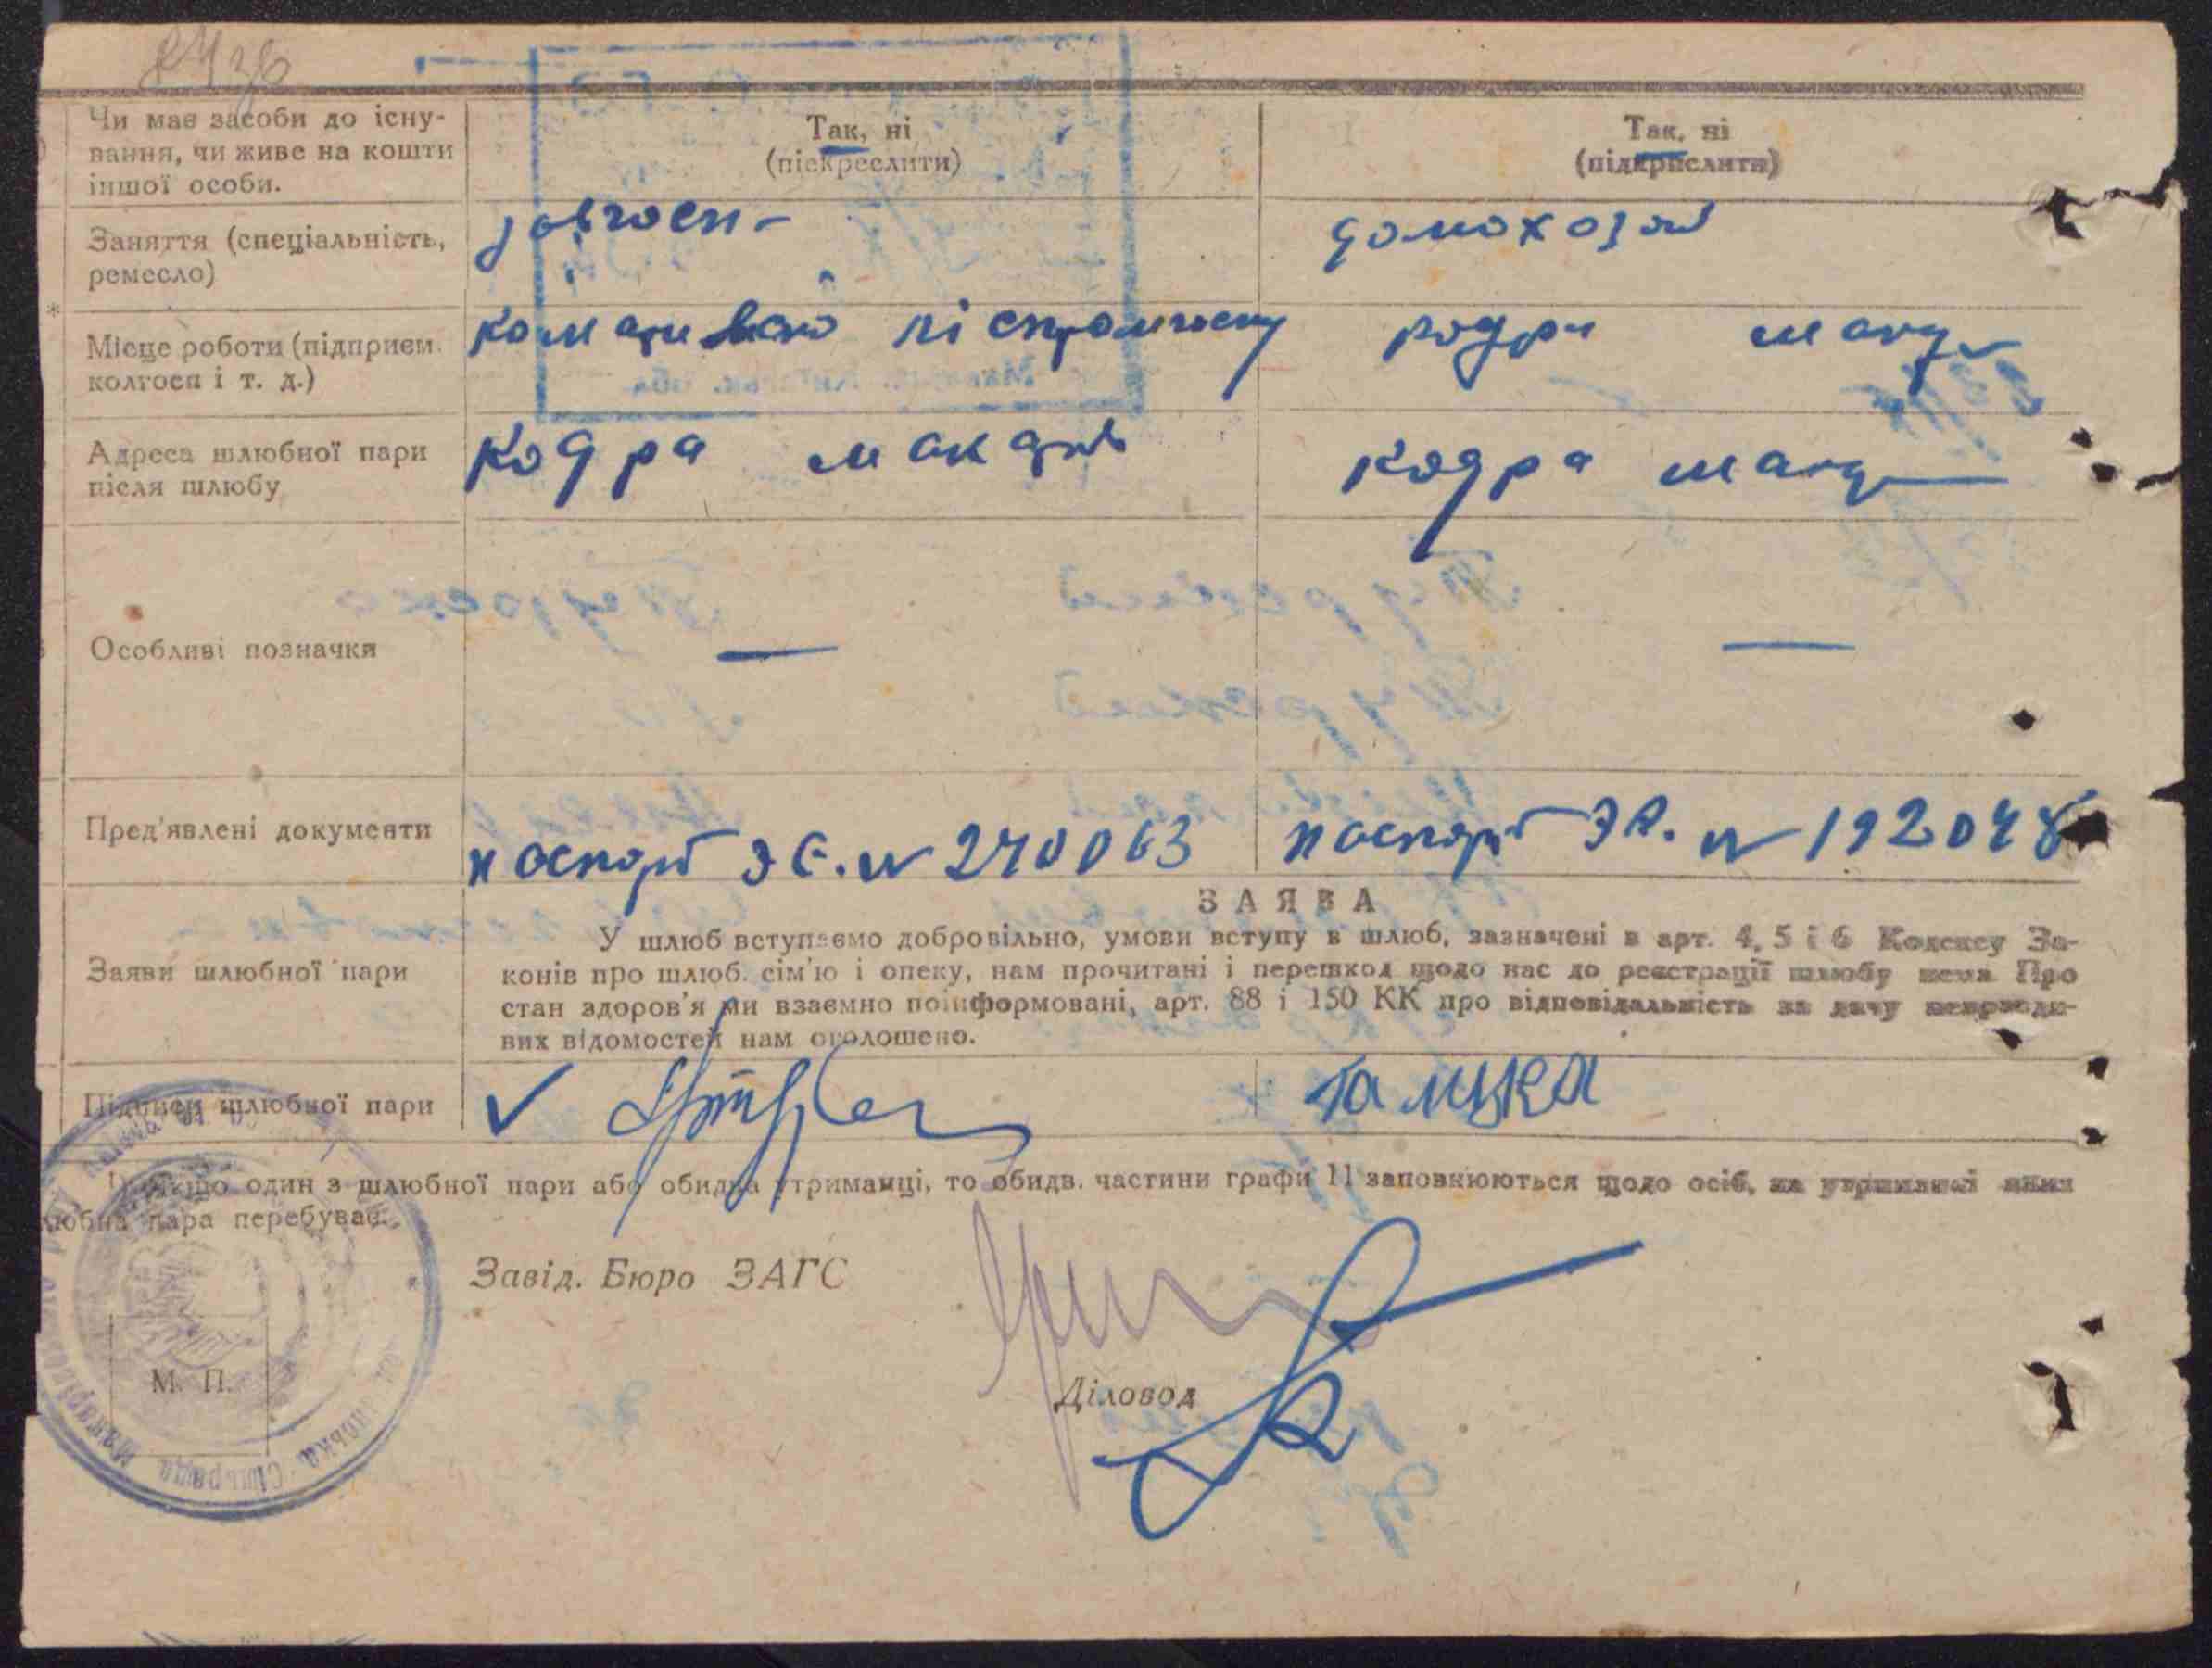 Чи має засоби до існу-
вання, чи живе на кошти
іншої особи.
Так, ні
(піскреслити)
Так, ні
(підкрислити)
Заняття (спеціальність,
ремесло)
домохозяй
Місце роботи (підприєм.
колгосп і т. д.)
Адреса шлюбної пари
після шлюбу
кодра макарів
кодра мак
Особливі позначки
—
—
Пред'явлені документи
паспорт ЭС. N 270063
паспорт ЭR. N 192048
Заяви шлюбної пари
ЗАЯВА
У шлюб вступаємо добровільно, умови вступу в шлюб, зазначені в арт. 4, 5 і 6 Кодексу За-
конів про шлюб. сім'ю і опеку, нам прочитані і перешкод щодо нас до реєстрації шлюбу нема Про
стан здоров'я ми взаємно поінформовані, арт. 88 і 150 КК про відповідальність за дачу неправди-
вих відомостей нам оголошено.
Підписи шлюбної пари
✓
Галицка
1) Якщо один з шлюбної пари або обидва утриманці, то обидв. частини графи 11 заповнюються щодо осіб, на утриманні яких
любна пара перебуває.
Завід. Бюро ЗАГС
Діловод
М. П.
Сільрада